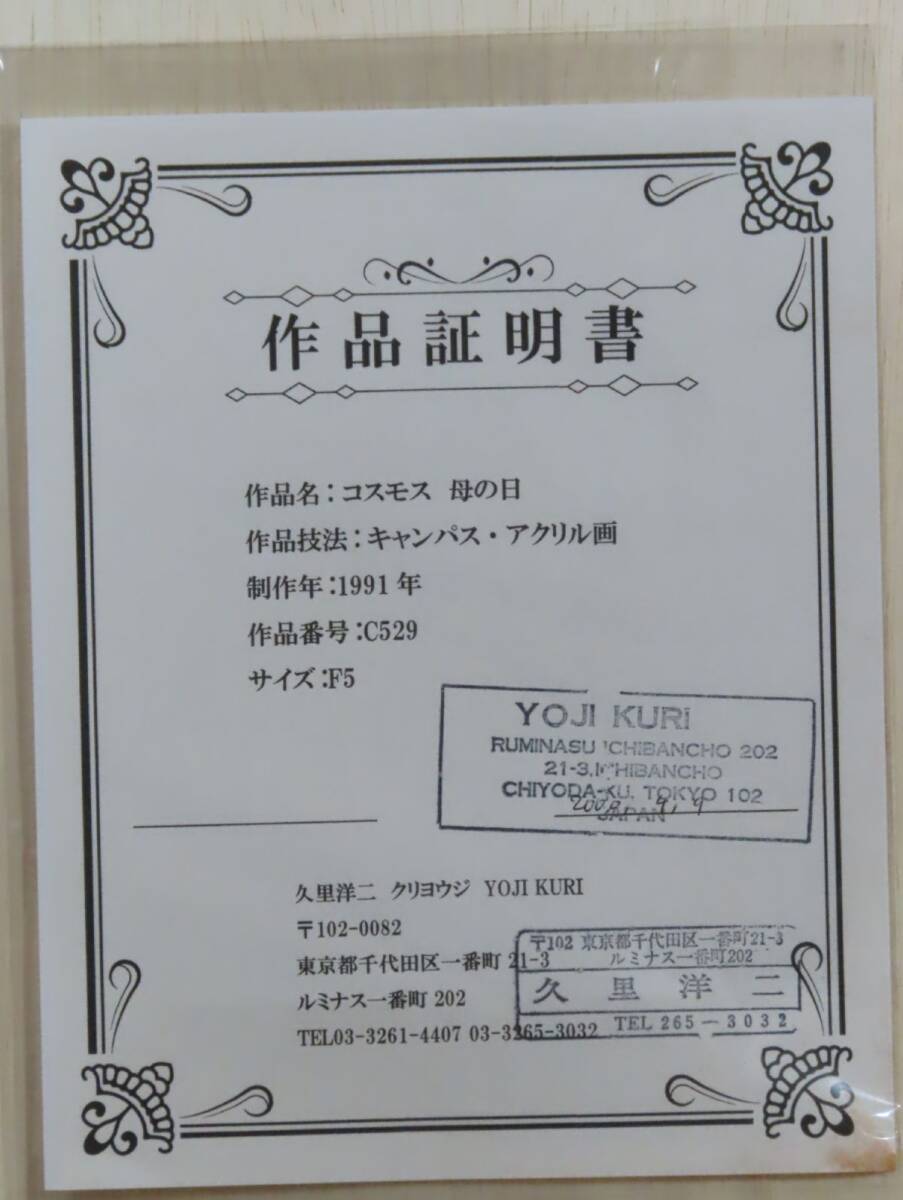 作品証明書
作品名：コスモス 母の日
作品技法：キャンパス・アクリル画
制作年：1991年
作品番号：C529
サイズ：F5
YOJI KURI
RUMINASU ICHIBANCHO 202
21-3,ICHIBANCHO
CHIYODA-KU, TOKYO 102
JAPAN
9, 9
久里洋二 クリヨウジ YOJI KURI
〒102-0082
東京都千代田区一番町 21-3
ルミナス一番町 202
TEL03-3261-4407 03-3265-3032
〒102 東京都千代田区一番町21-3
ルミナス一番町202
久里洋二
TEL 265－3032